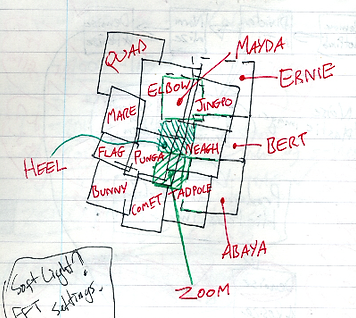 QUAD
MAYDA
ELBOW
ERNIE
JINGPO
MARE
FLAG
PUNGA
NEAGH
BERT
HEEL
BUNNY
COMET
TADPOLE
ABAYA
ZOOM
Soft Light!
EFT settings.